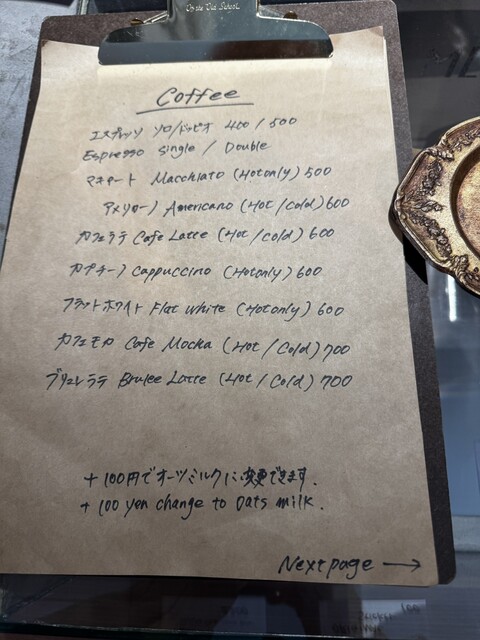 On the Old School.
Coffee
エスプレッソ ソロ/ドッピオ 400 / 500
Espresso Single / Double
マキアート Macchiato (Hot only) 500
アメリカーノ Americano (Hot / Cold) 600
カフェラテ Cafe Latte (Hot / Cold) 600
カプチーノ Cappuccino (Hot only) 600
フラットホワイト Flat White (Hot only) 600
カフェモカ Cafe Mocha (Hot / Cold) 700
ブリュレラテ Brulee Latte (Hot / Cold) 700
+ 100円でオーツミルクに変更できます.
+ 100 yen change to Oats milk.
Next page →